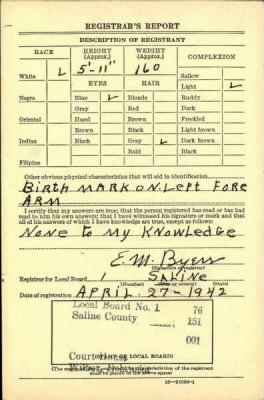 REGISTRAR'S REPORT
DESCRIPTION OF REGISTRANT
RACE HEIGHT (Approx.) WEIGHT (Approx.) COMPLEXION
White ✓ 5'-11" 160 Sallow
EYES HAIR Light ✓
Negro Blue ✓ Blonde Ruddy
Gray Red Dark
Oriental Hazel Brown Freckled
Brown Black Light brown
Indian Black Gray ✓ Dark brown
Bald Black
Filipino
Other obvious physical characteristics that will aid in identification
Birth MARK ON LEFT FORE
ARM
I certify that my answers are true; that the person registered has read or has had
read to him his own answers; that I have witnessed his signature or mark and that
all of his answers of which I have knowledge are true, except as follows:
NONE to My KNowledge
E. M. Byers
(Signature of registrar)
Registrar for Local Board 1 SALINE
(Number) (City or county)
Date of registration APRIL 27-1942
Local Board No. 1 76
Saline County 151
001
Courthouse
(STAMP OF LOCAL BOARD)
(The stamp of the Local Board having jurisdiction of the registrant
shall be placed in the above space)